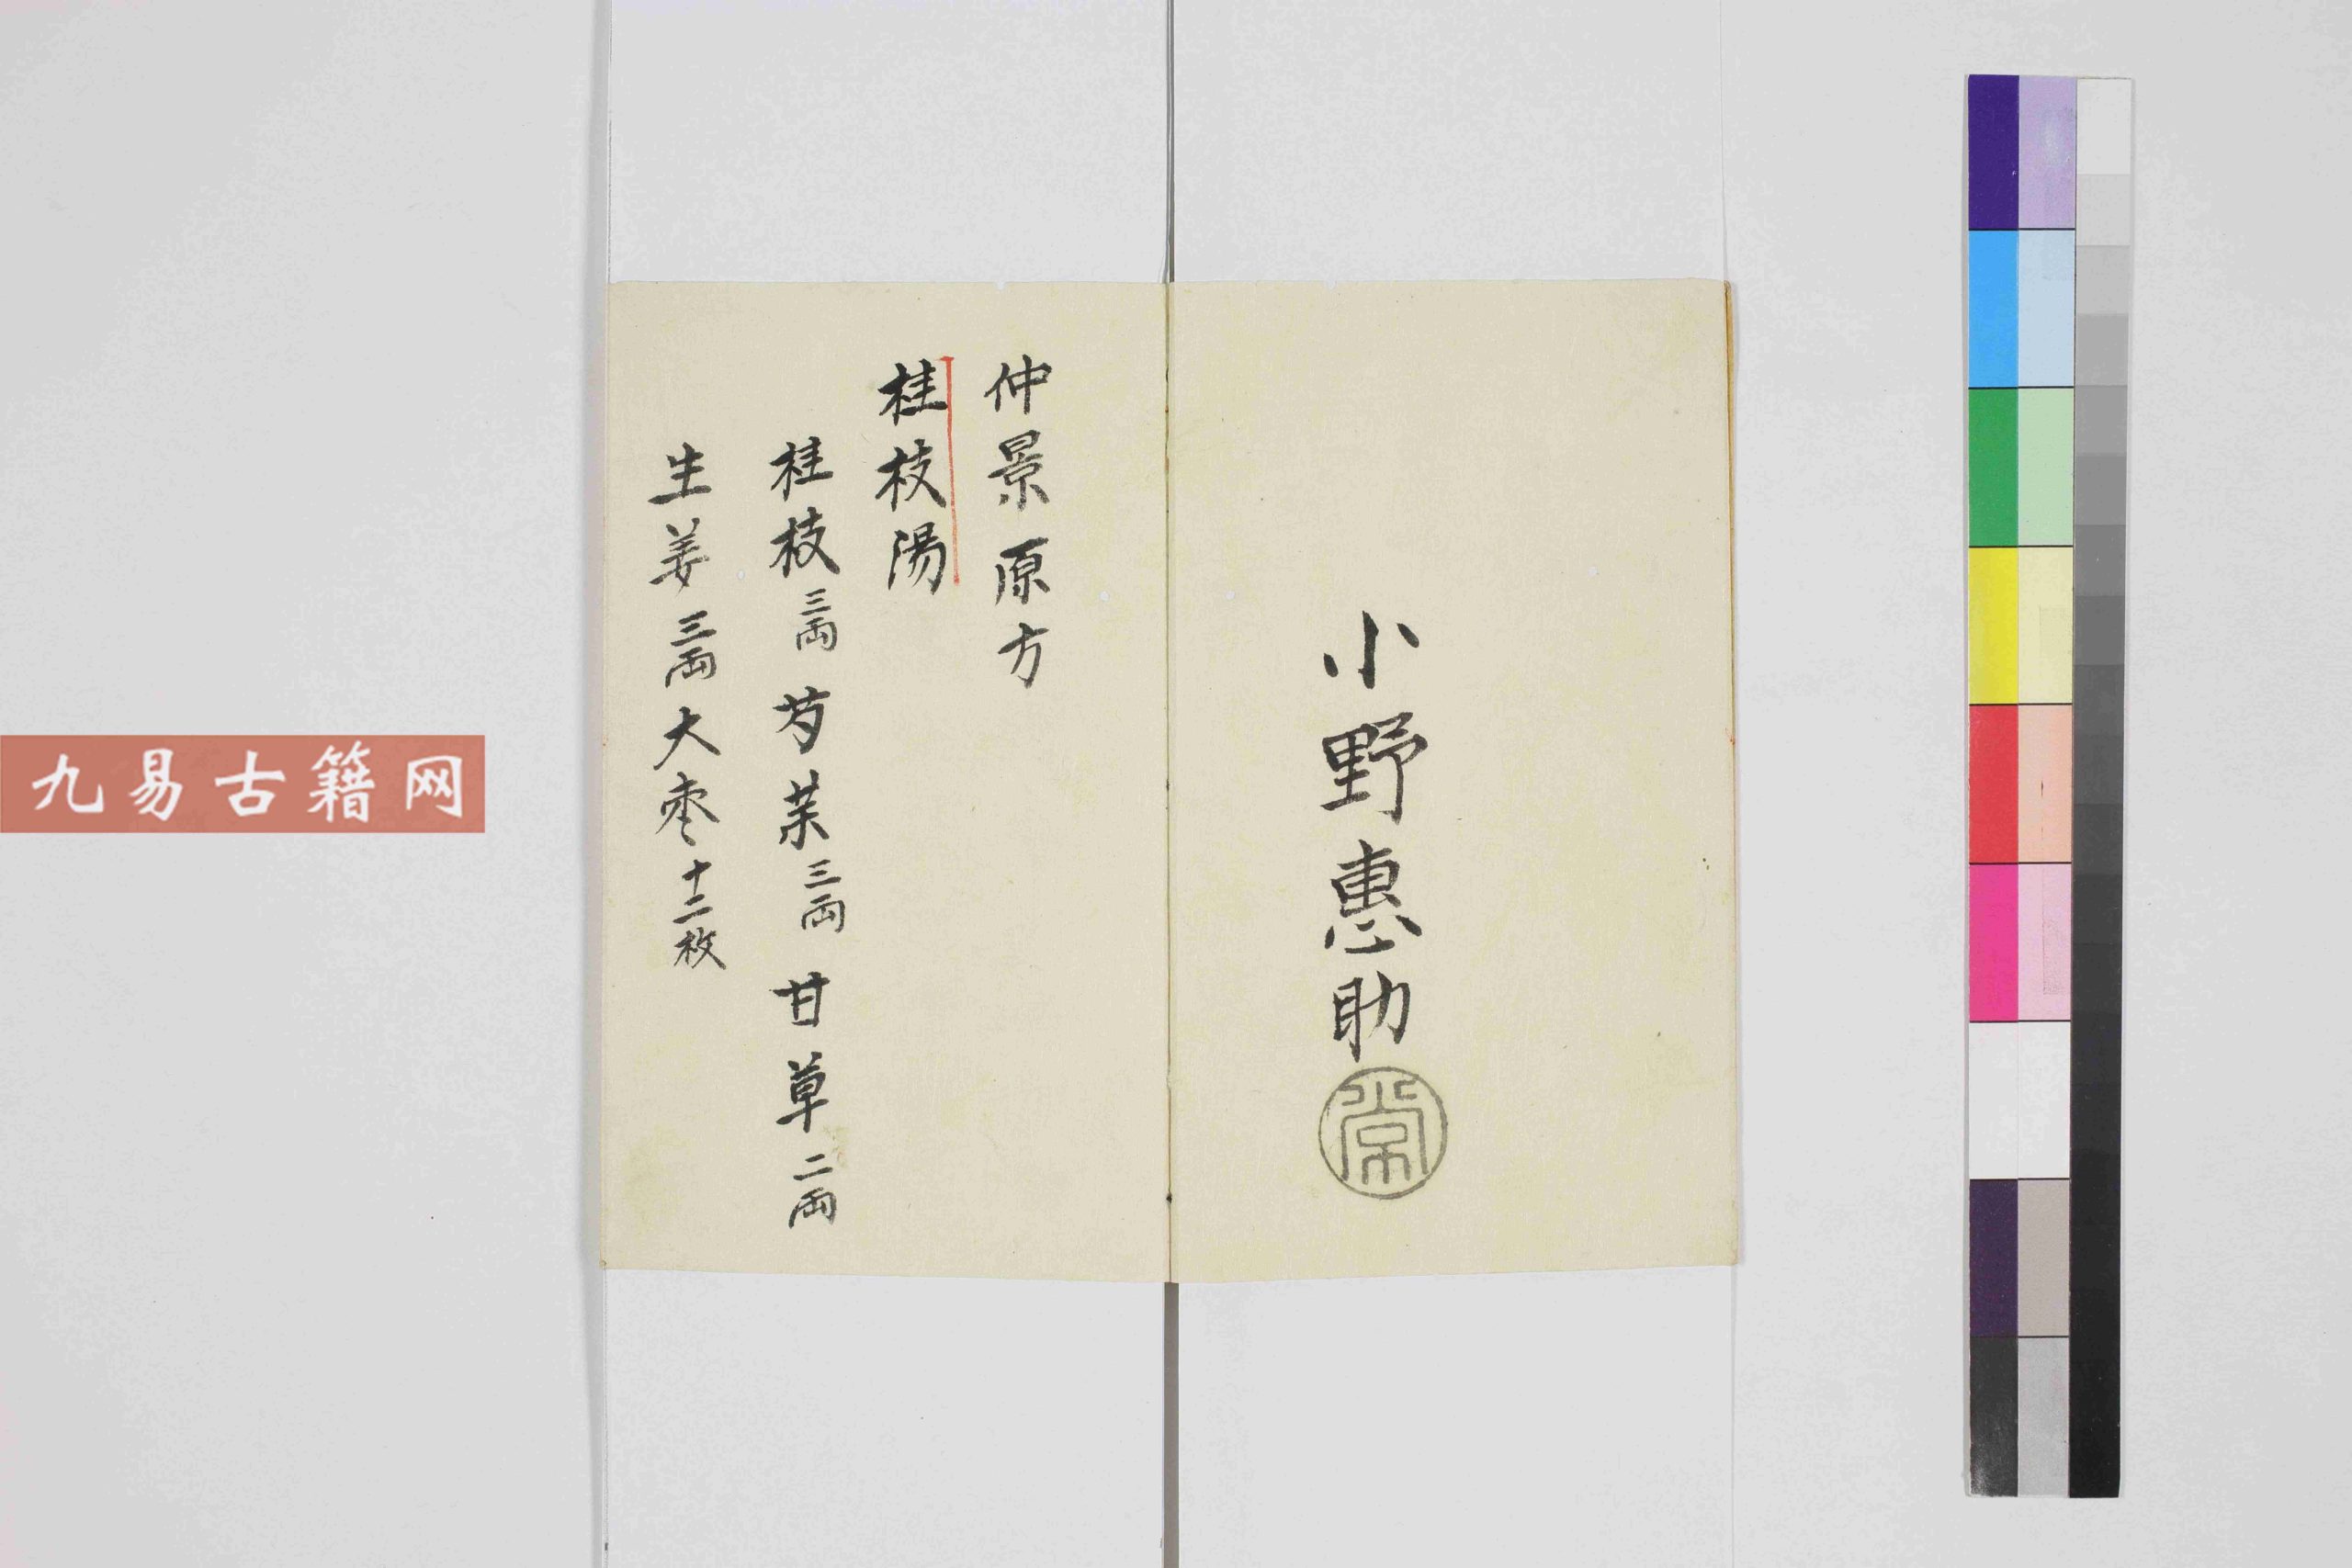 小野惠助
常
仲景原方
桂枝湯
桂枝三两芍茱三两甘草二两
生姜三两大枣十二枚
九易古籍网